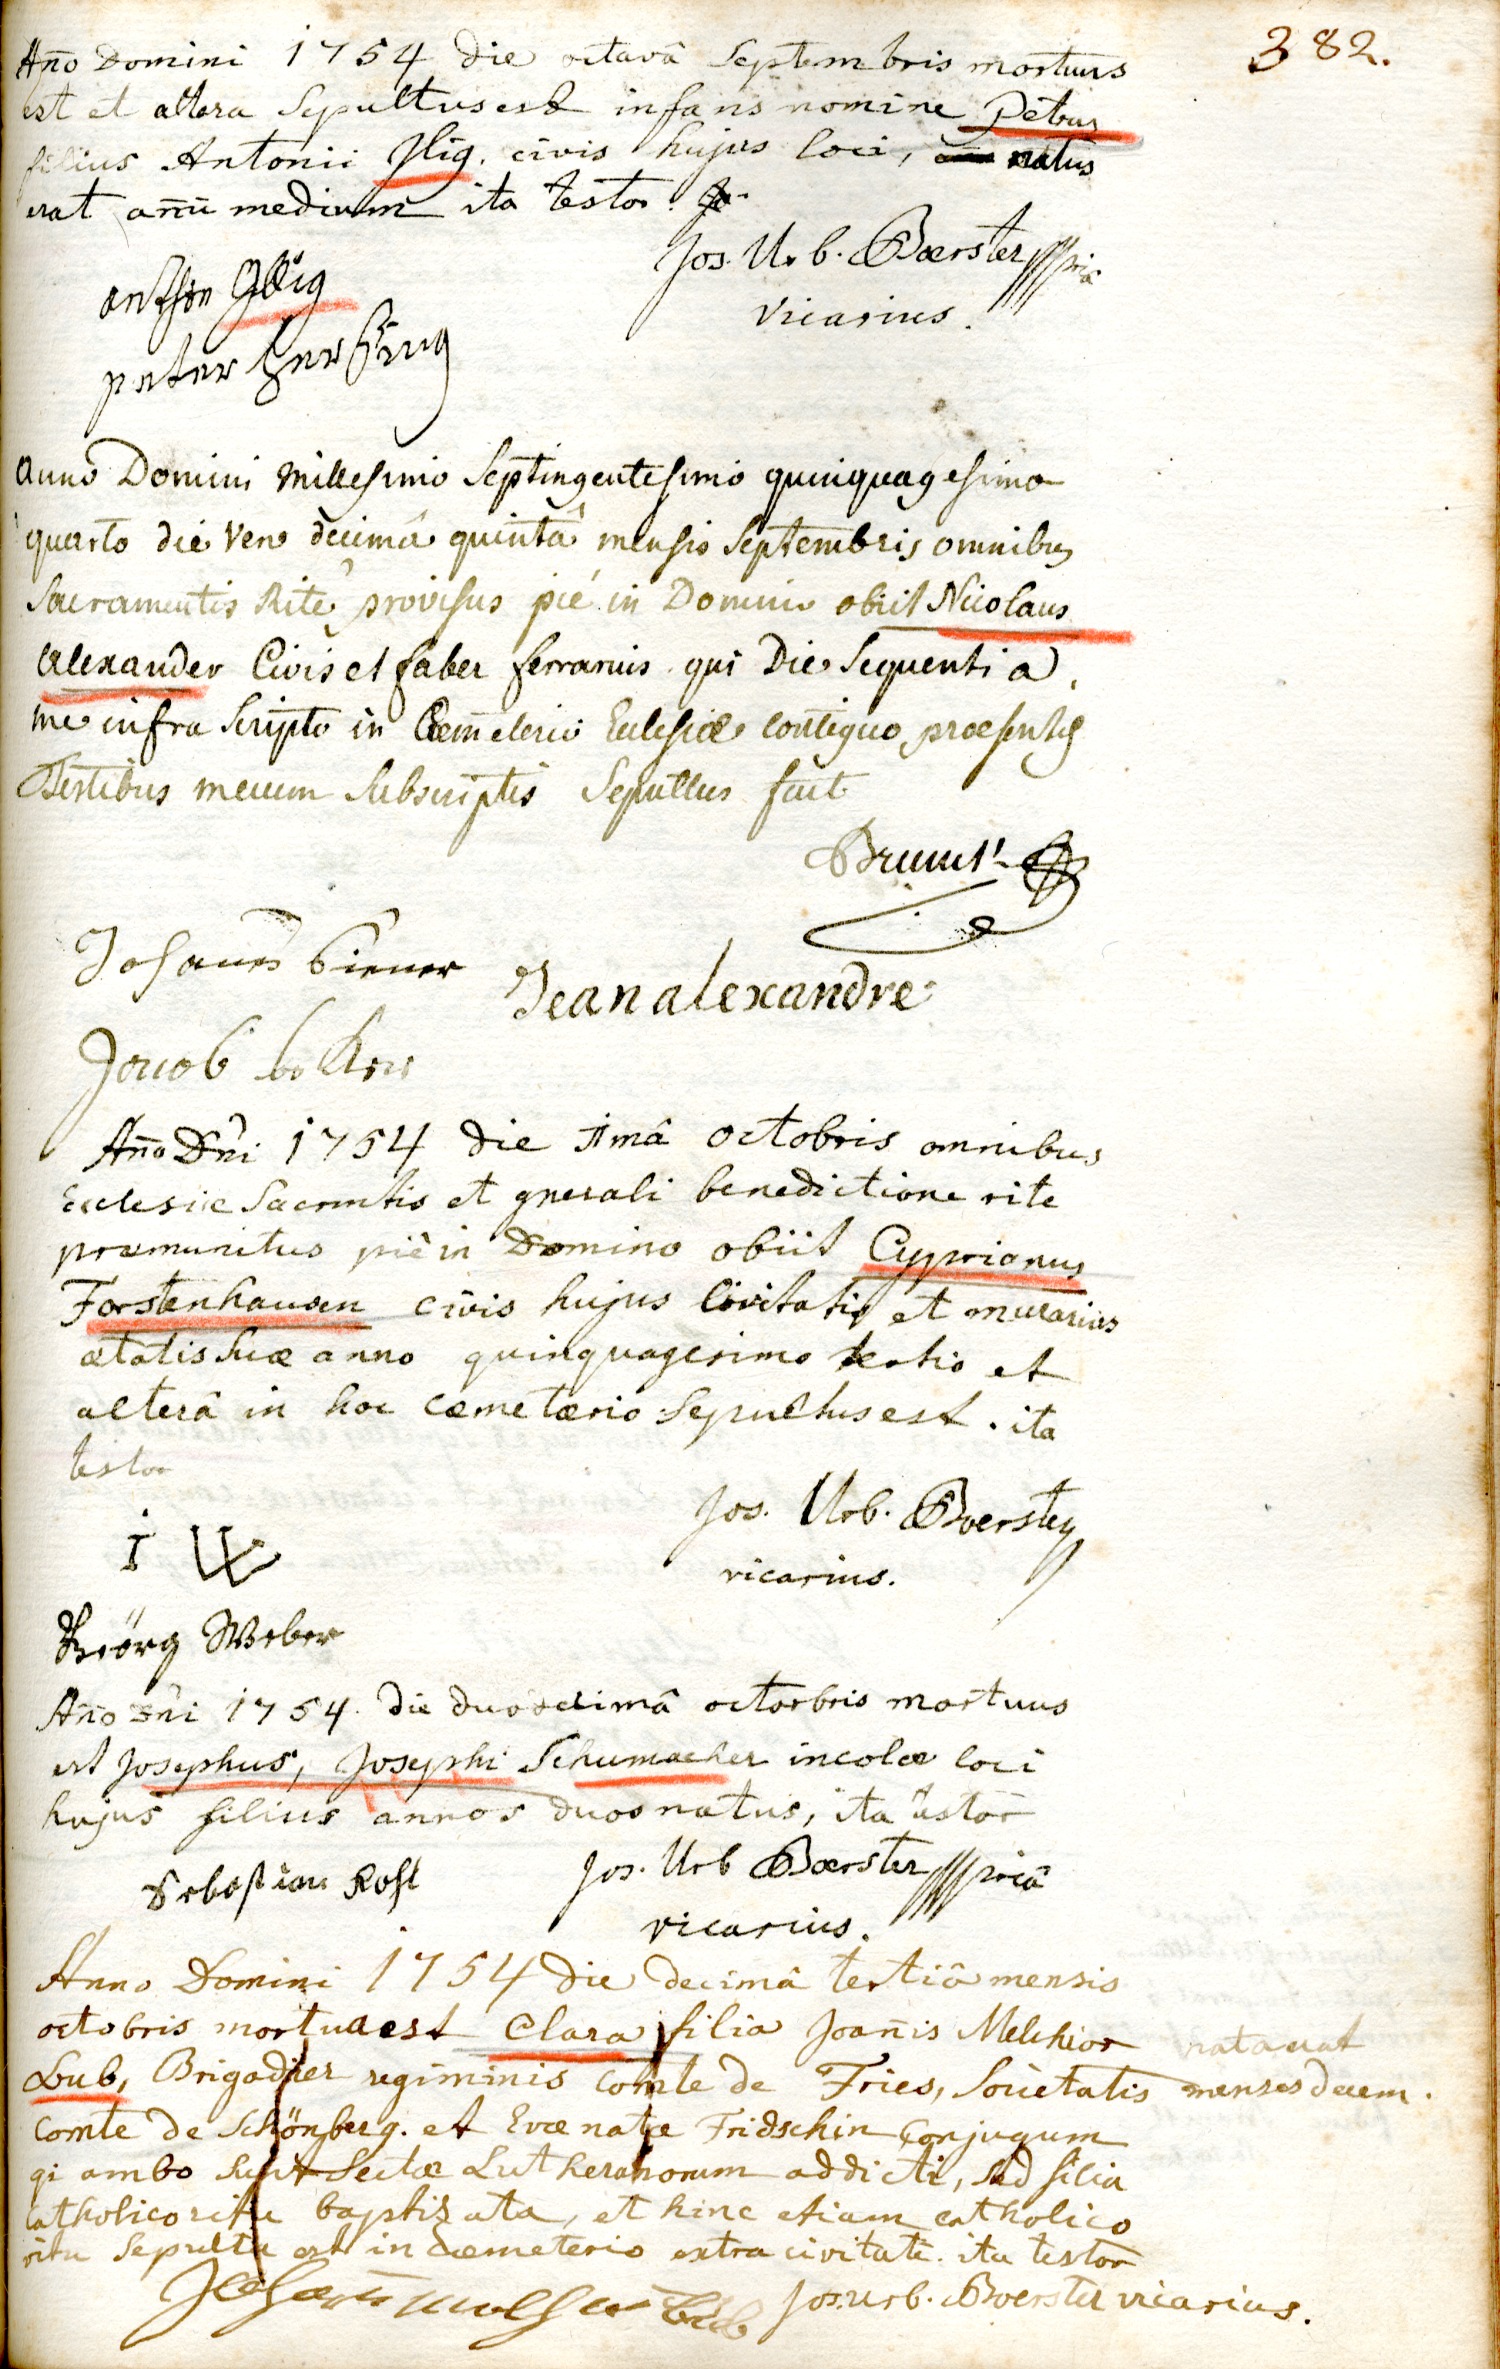 382.
Ano Domini 1754 die octavâ Septembris mortuus
est et altera Sepultus est infans nomine Petrus
filius Antonii Jllig. civis hujus loci, natus
erat anu medium ita testor.
Jos. Urb. Boerster
vicarius.
anthon Jllig
peter
Anno Domini Millesimo Septingentesimo quinquagesimo
quarto die vero decimâ quintâ mensis Septembris omnibus
Sacramentis Rite provisus pié in Domino obiit Nicolaus
Alexander Civis et faber ferrarius qui Die Sequenti a
me infra Scripto in Coemeterio Eclesiæ contiguo, præsentib
Testibus mecum Subscriptis Sepultus fuit
Johannes biener
Jean alexandre
Jacob
Ano Dni 1754 die imâ octobris omnibus
Ecclesiæ Sacrmtis et gnerali benedictione rite
præmunitus piè in Domino obiit Cyprianus
Forstenhausen civis hujus Civitatis et murarius
ætatis suæ anno quinquagesimo tertio et
alterâ in hoc cæmetærio Sepultus est. ita
testor
Jos. Urb. Boerster
vicarius.
I W
Geörg Weber
Ano Dni 1754. die duodecimâ octobris mortuus
est Josephus, Josephi Schumacher incolæ loci
hujus filius annos duos natus, ita testor
Sebastian Rost
Jos. Urb Boerster
vicarius.
Anno Domini 1754 die decimâ tertiâ mensis
octobris mortua est Clara filia Joanis Melchior nata erat
Bub, Brigadier regiminis comte de Fries, Societatis menses decem.
comte de Schönberg. et Evæ natæ Fridschin conjugum
qi ambo sunt Sectæ Lutheranorum addicti, sed filia
catholico ritu baptizata, et hinc etiam catholico
ritu Sepulta est in Cæmeterio extra civitate. ita testor
Jos. Urb. Boerster vicarius.